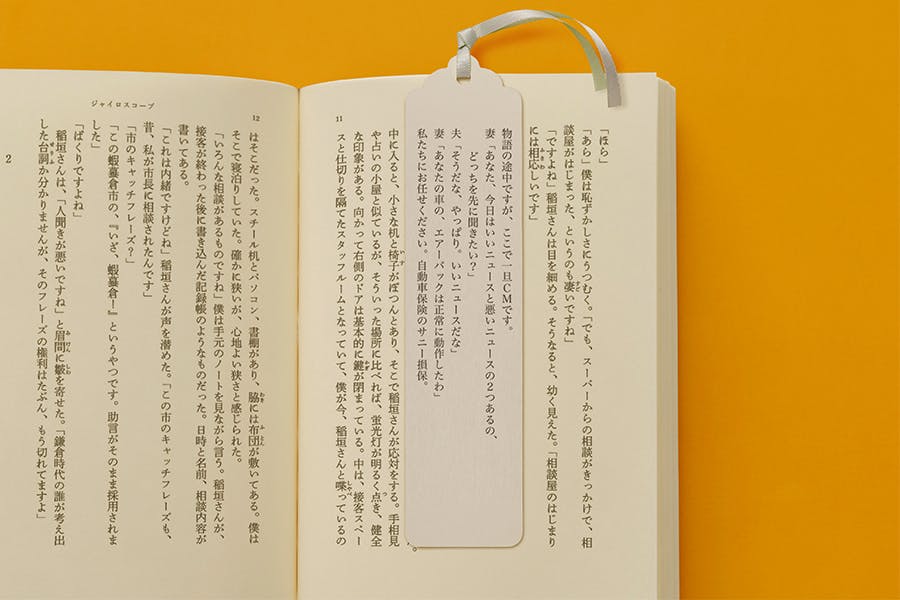 11
「ほら」
「あら」僕は恥ずかしさにうつむく。「でも、スーパーからの相談がきっかけで、相
談屋がはじまった、というのも凄いですね」
「ですよね」稲垣さんは目を細める。そうなると、幼く見えた。「相談屋のはじまり
には相応しいです」
物語の途中ですが、ここで一旦CMです。
妻「あなた、今日はいいニュースと悪いニュースの2つあるの、
どっちを先に聞きたい?」
夫「そうだな、やっぱり。いいニュースだな」
妻「あなたの車の、エアーバックは正常に動作したわ」
私たちにお任せください。自動車保険のサニー損保。
中に入ると、小さな机と椅子がぽつんとあり、そこで稲垣さんが応対をする。手相見
や占いの小屋と似ているが、そういった場所に比べれば、蛍光灯が明るく点き、健全
な印象がある。向かって右側のドアは基本的に鍵が閉まっている。中は、接客スペー
スと仕切りを隔てたスタッフルームとなっていて、僕が今、稲垣さんと喋っているの
12
ジャイロスコープ
はそこだった。スチール机とパソコン、書棚があり、脇には布団が敷いてある。僕は
そこで寝泊りしていた。確かに狭いが、心地よい狭さと感じられた。
「いろんな相談があるものですね」僕は手元のノートを見ながら言う。稲垣さんが、
接客が終わった後に書き込んだ記録帳のようなものだった。日時と名前、相談内容が
書いてある。
「これは内緒ですけどね」稲垣さんが声を潜めた。「この市のキャッチフレーズも、
昔、私が市長に相談されたんです」
「市のキャッチフレーズ?」
「この蝦蟇倉市の、『いざ、蝦蟇倉!』というやつです。助言がそのまま採用されま
した」
「ぱくりですよね」
稲垣さんは、「人聞きが悪いですね」と眉間に皺を寄せた。「鎌倉時代の誰が考え出
した台詞か分かりませんが、そのフレーズの権利はたぶん、もう切れてますよ」
2